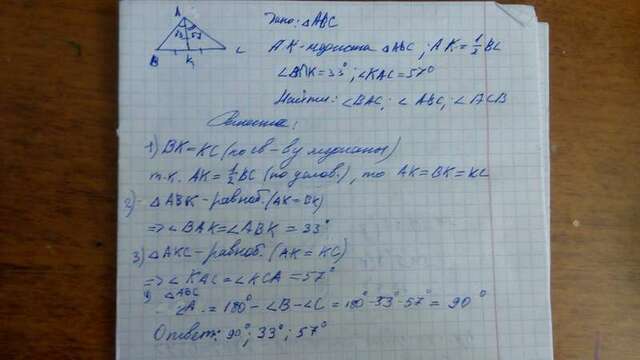 A
33 57
B K C
Дано: △ABC
AK-медиана △ABC; AK=1/2BC
∠BAK=33°; ∠KAC=57°
Найти: ∠BAC; ∠ABC; ∠ACB
Решение:
1) BK=KC (по св-ву медианы)
т.к. AK=1/2BC (по услов.), то AK=BK=KC
2) △ABK-равноб. (AK=BK)
=> ∠BAK=∠ABK=33°
3) △AKC-равноб. (AK=KC)
=> ∠KAC=∠KCA=57°
4) △ABC
∠A=180°-∠B-∠C=180°-33°-57°=90°
Ответ: 90°; 33°; 57°